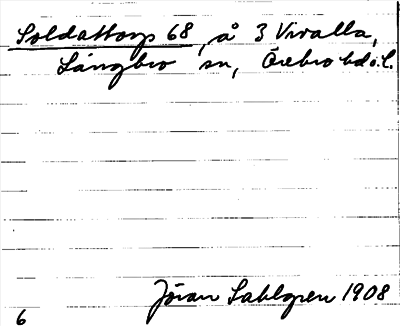 Soldattorp 68, å 3 Vivalla,
Längbro sn, Örebro hd o. l.
Jöran Sahlgren 1908
6